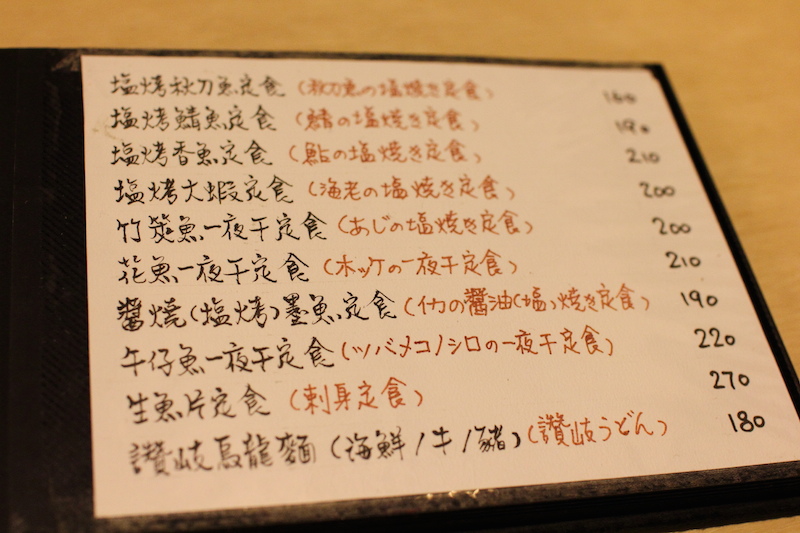 塩烤秋刀魚定食 (秋刀魚の塩焼き定食) 180
塩烤鯖魚定食 (鯖の塩焼き定食) 190
塩烤香魚定食 (鮎の塩焼き定食) 210
塩烤大蝦定食 (海老の塩焼き定食) 200
竹筴魚一夜干定食 (あじの塩焼き定食) 200
花魚一夜干定食 (ホッケの一夜干定食) 210
醬燒(塩烤)墨魚定食 (イカの醤油(塩)焼き定食) 190
午仔魚一夜干定食 (ツバメコノシロの一夜干定食) 220
生魚片定食 (刺身定食) 270
讃岐烏龍麵 (海鮮/牛/豬) (讃岐うどん) 180